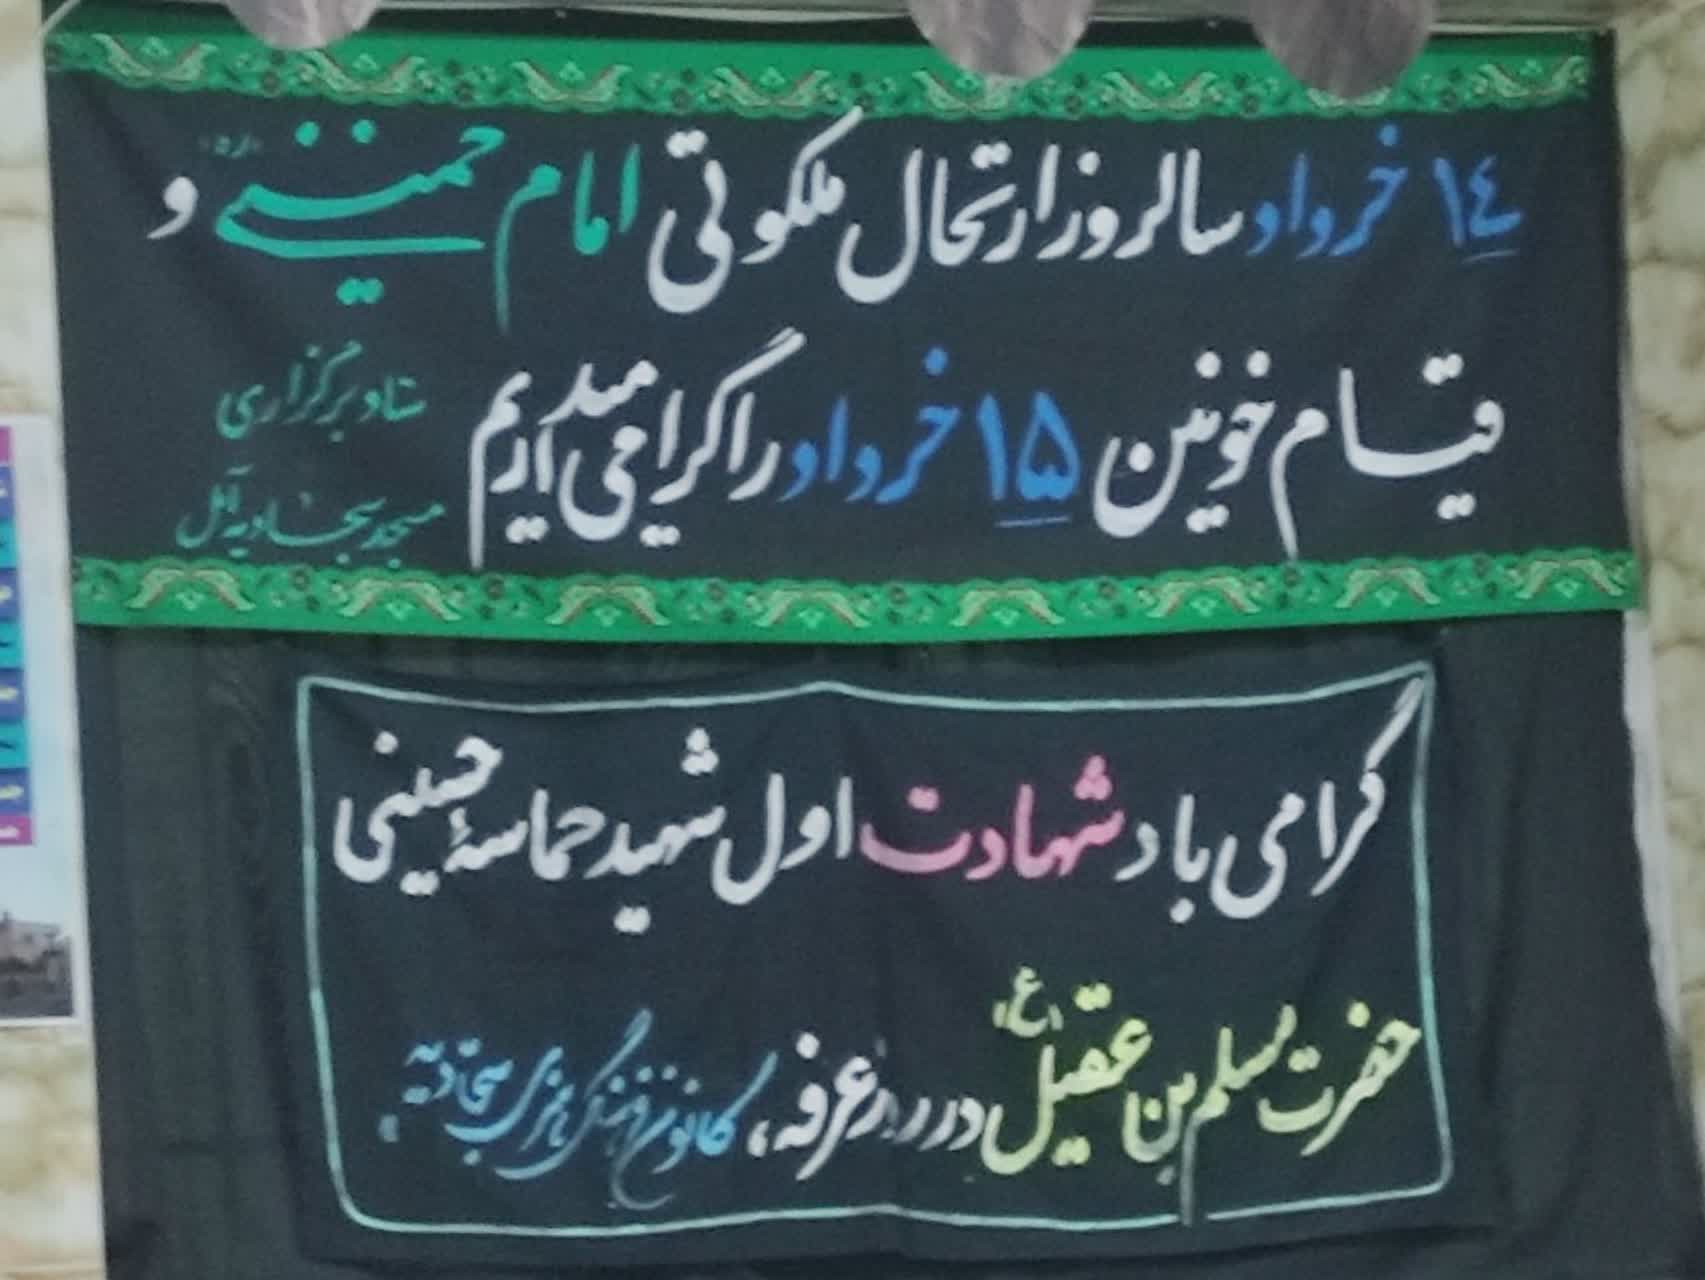 ۱۴ خرداد سالروز ارتحال ملکوتی امام خمینی (ره) و
قیام خونین ۱۵ خرداد را گرامی میداریم
ستاد برگزاری
مسجد سجادیه آمل
گرامی باد شهادت اول شهید حماسهٔ حسینی
حضرت مسلم بن عقیل (ع) در روز عرفه، کانون فرهنگی هنری سجادیه